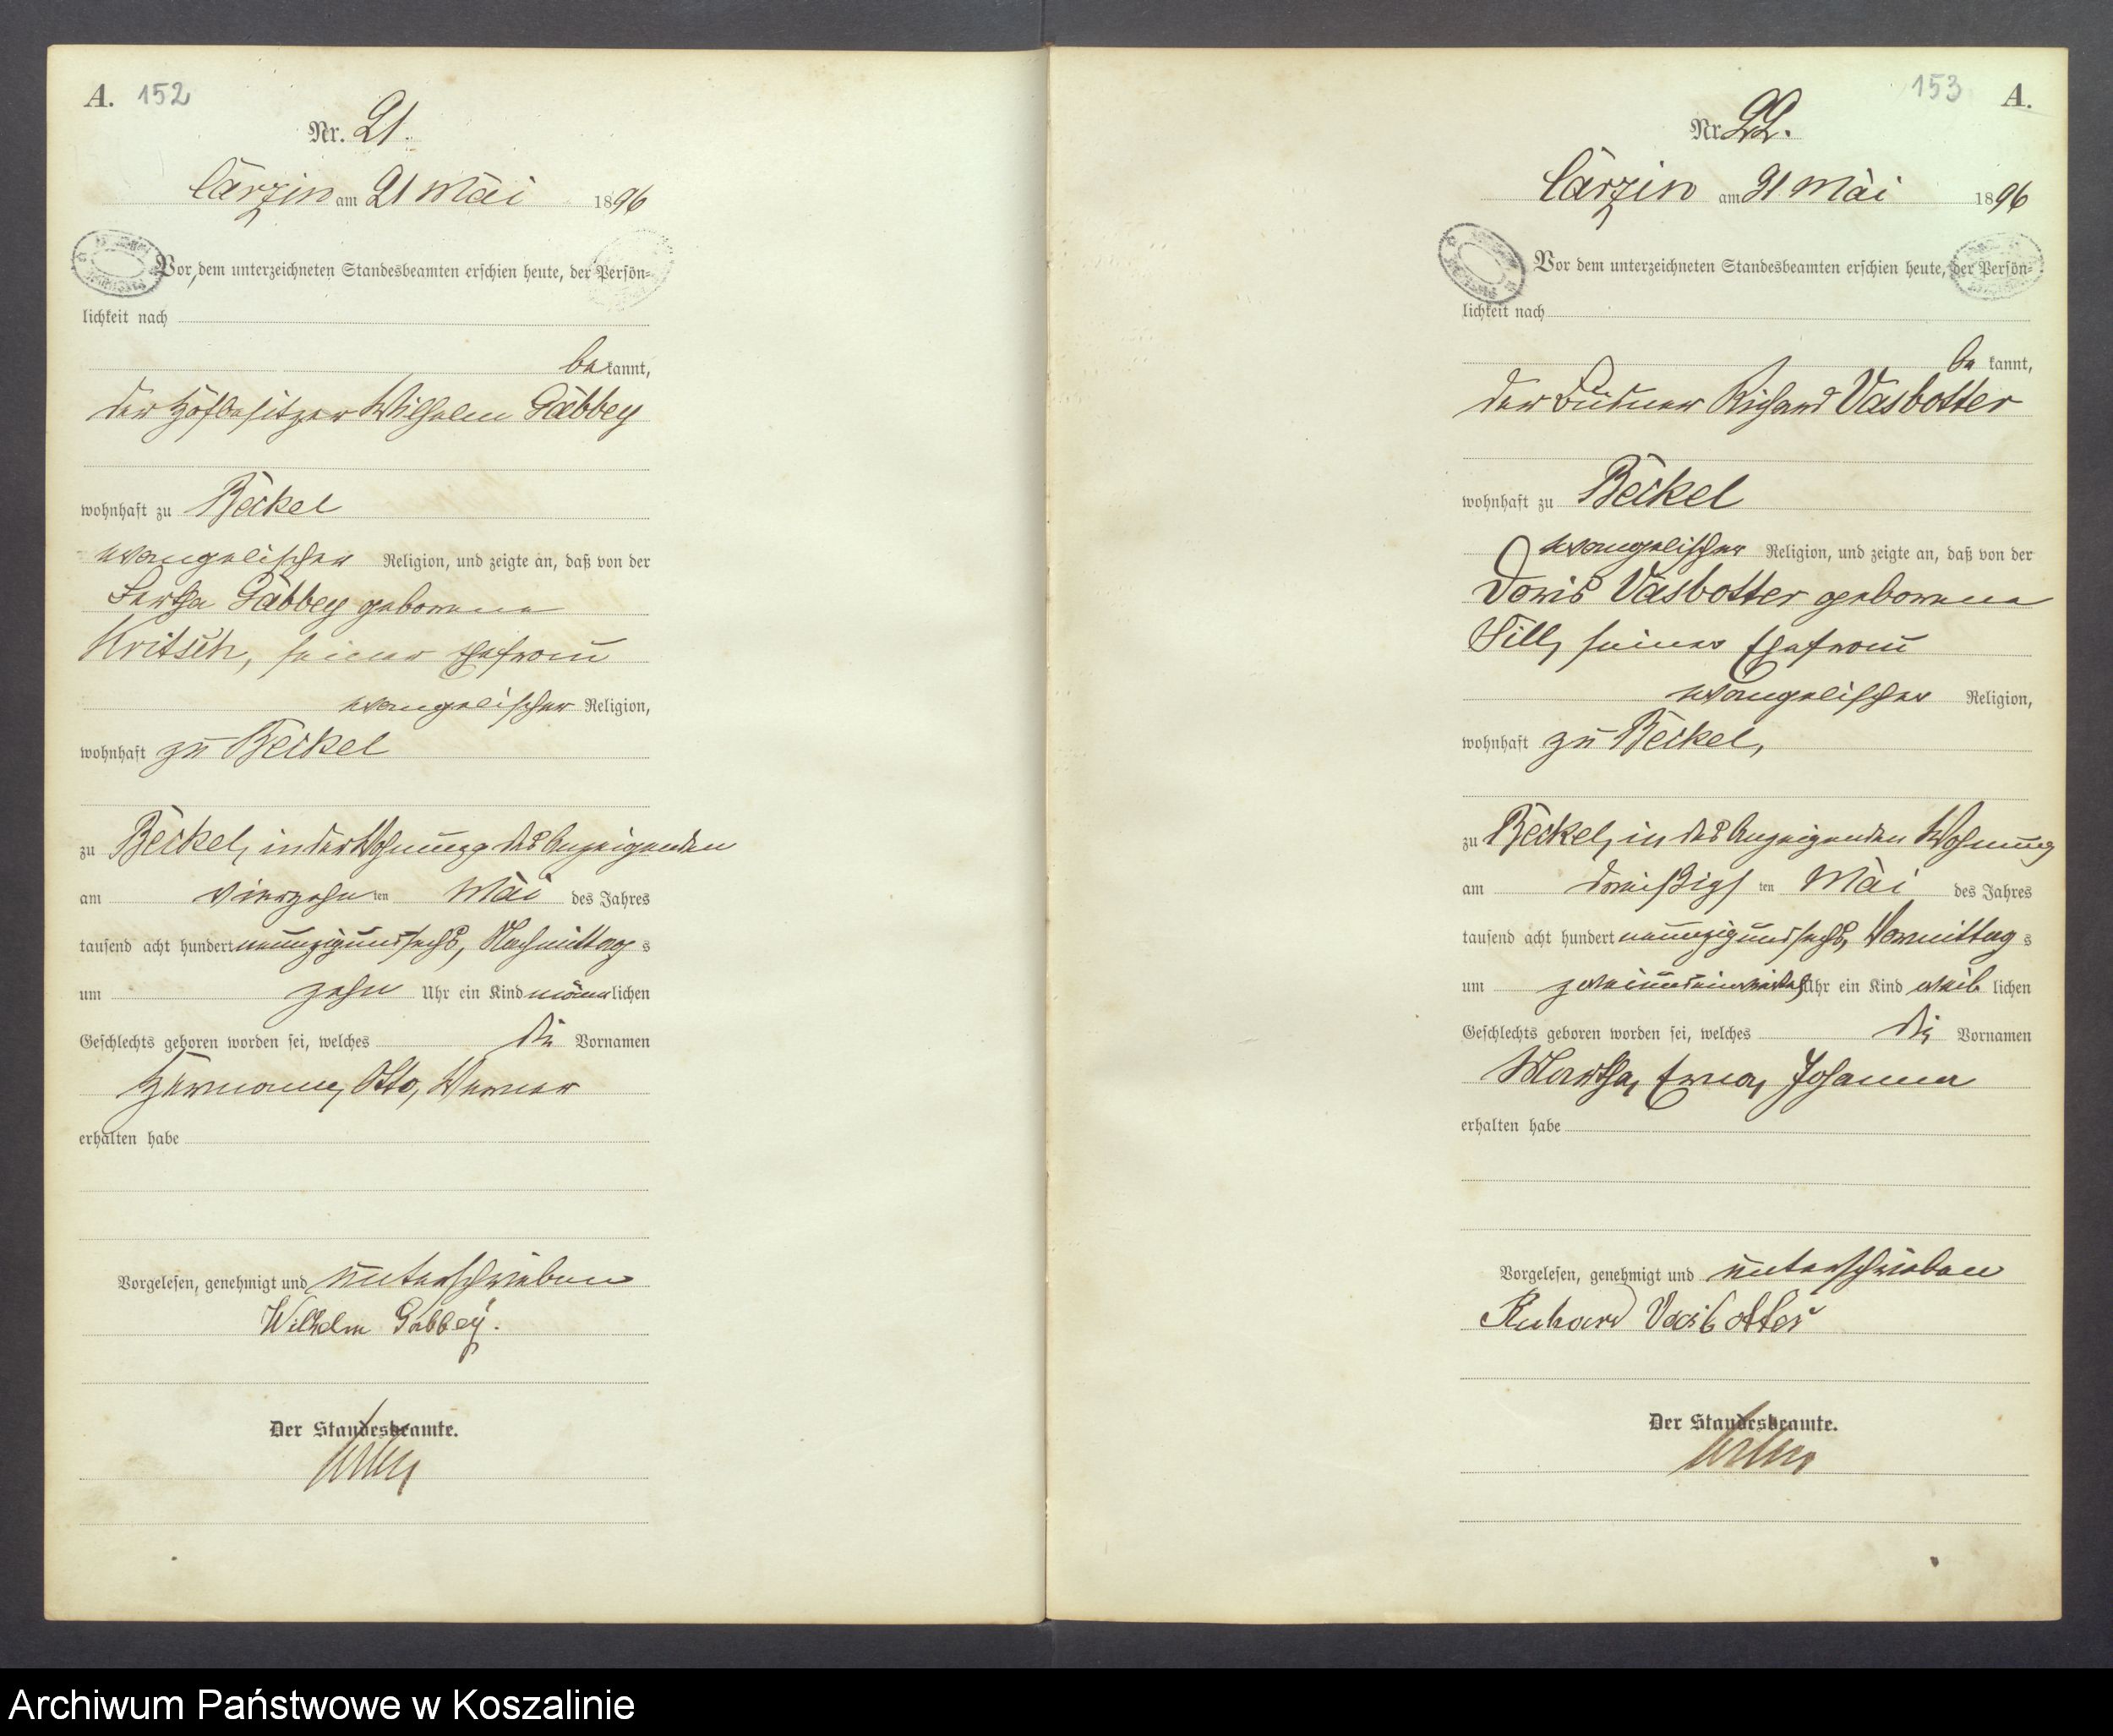 A. 152
Nr. 21.
Carzin am 21 Mai 1896
Vor dem unterzeichneten Standesbeamten erschien heute, der Persön=
lichkeit nach
be kannt,
der Hofbesitzer Wilhelm Gabbey
wohnhaft zu Beckel
evangelischer Religion, und zeigte an, daß von der
Bertha Gabbey geborene
Kritsch, seiner Ehefrau
evangelischer Religion,
wohnhaft zu Beckel
zu Beckel, in der Wohnung des Anzeigenden
am vierzehn ten Mai des Jahres
tausend acht hundert neunzig und sechs, Nachmittag s
um zehn Uhr ein Kind männ lichen
Geschlechts geboren worden sei, welches die Vornamen
Hermann, Otto, Werner
erhalten habe
Vorgelesen, genehmigt und unterschrieben
Wilhelm Gabbey.
Der Standesbeamte.
153 A.
Nr. 22.
Carzin am 31 Mai 1896
Vor dem unterzeichneten Standesbeamten erschien heute, der Persön=
lichkeit nach
be kannt,
der Büdner Richard Vasbotter
wohnhaft zu Beckel
evangelischer Religion, und zeigte an, daß von der
Doris Vasbotter geborene
Till, seiner Ehefrau
evangelischer Religion,
wohnhaft zu Beckel,
zu Beckel, in des Anzeigenden Wohnung
am dreißigs ten Mai des Jahres
tausend acht hundert neunzig und sechs, Vormittag s
um zwei und ein viertel Uhr ein Kind weib lichen
Geschlechts geboren worden sei, welches die Vornamen
Martha, Erna, Johanna
erhalten habe
Vorgelesen, genehmigt und unterschrieben
Richard Vasbotter
Der Standesbeamte.
Archiwum Państwowe w Koszalinie